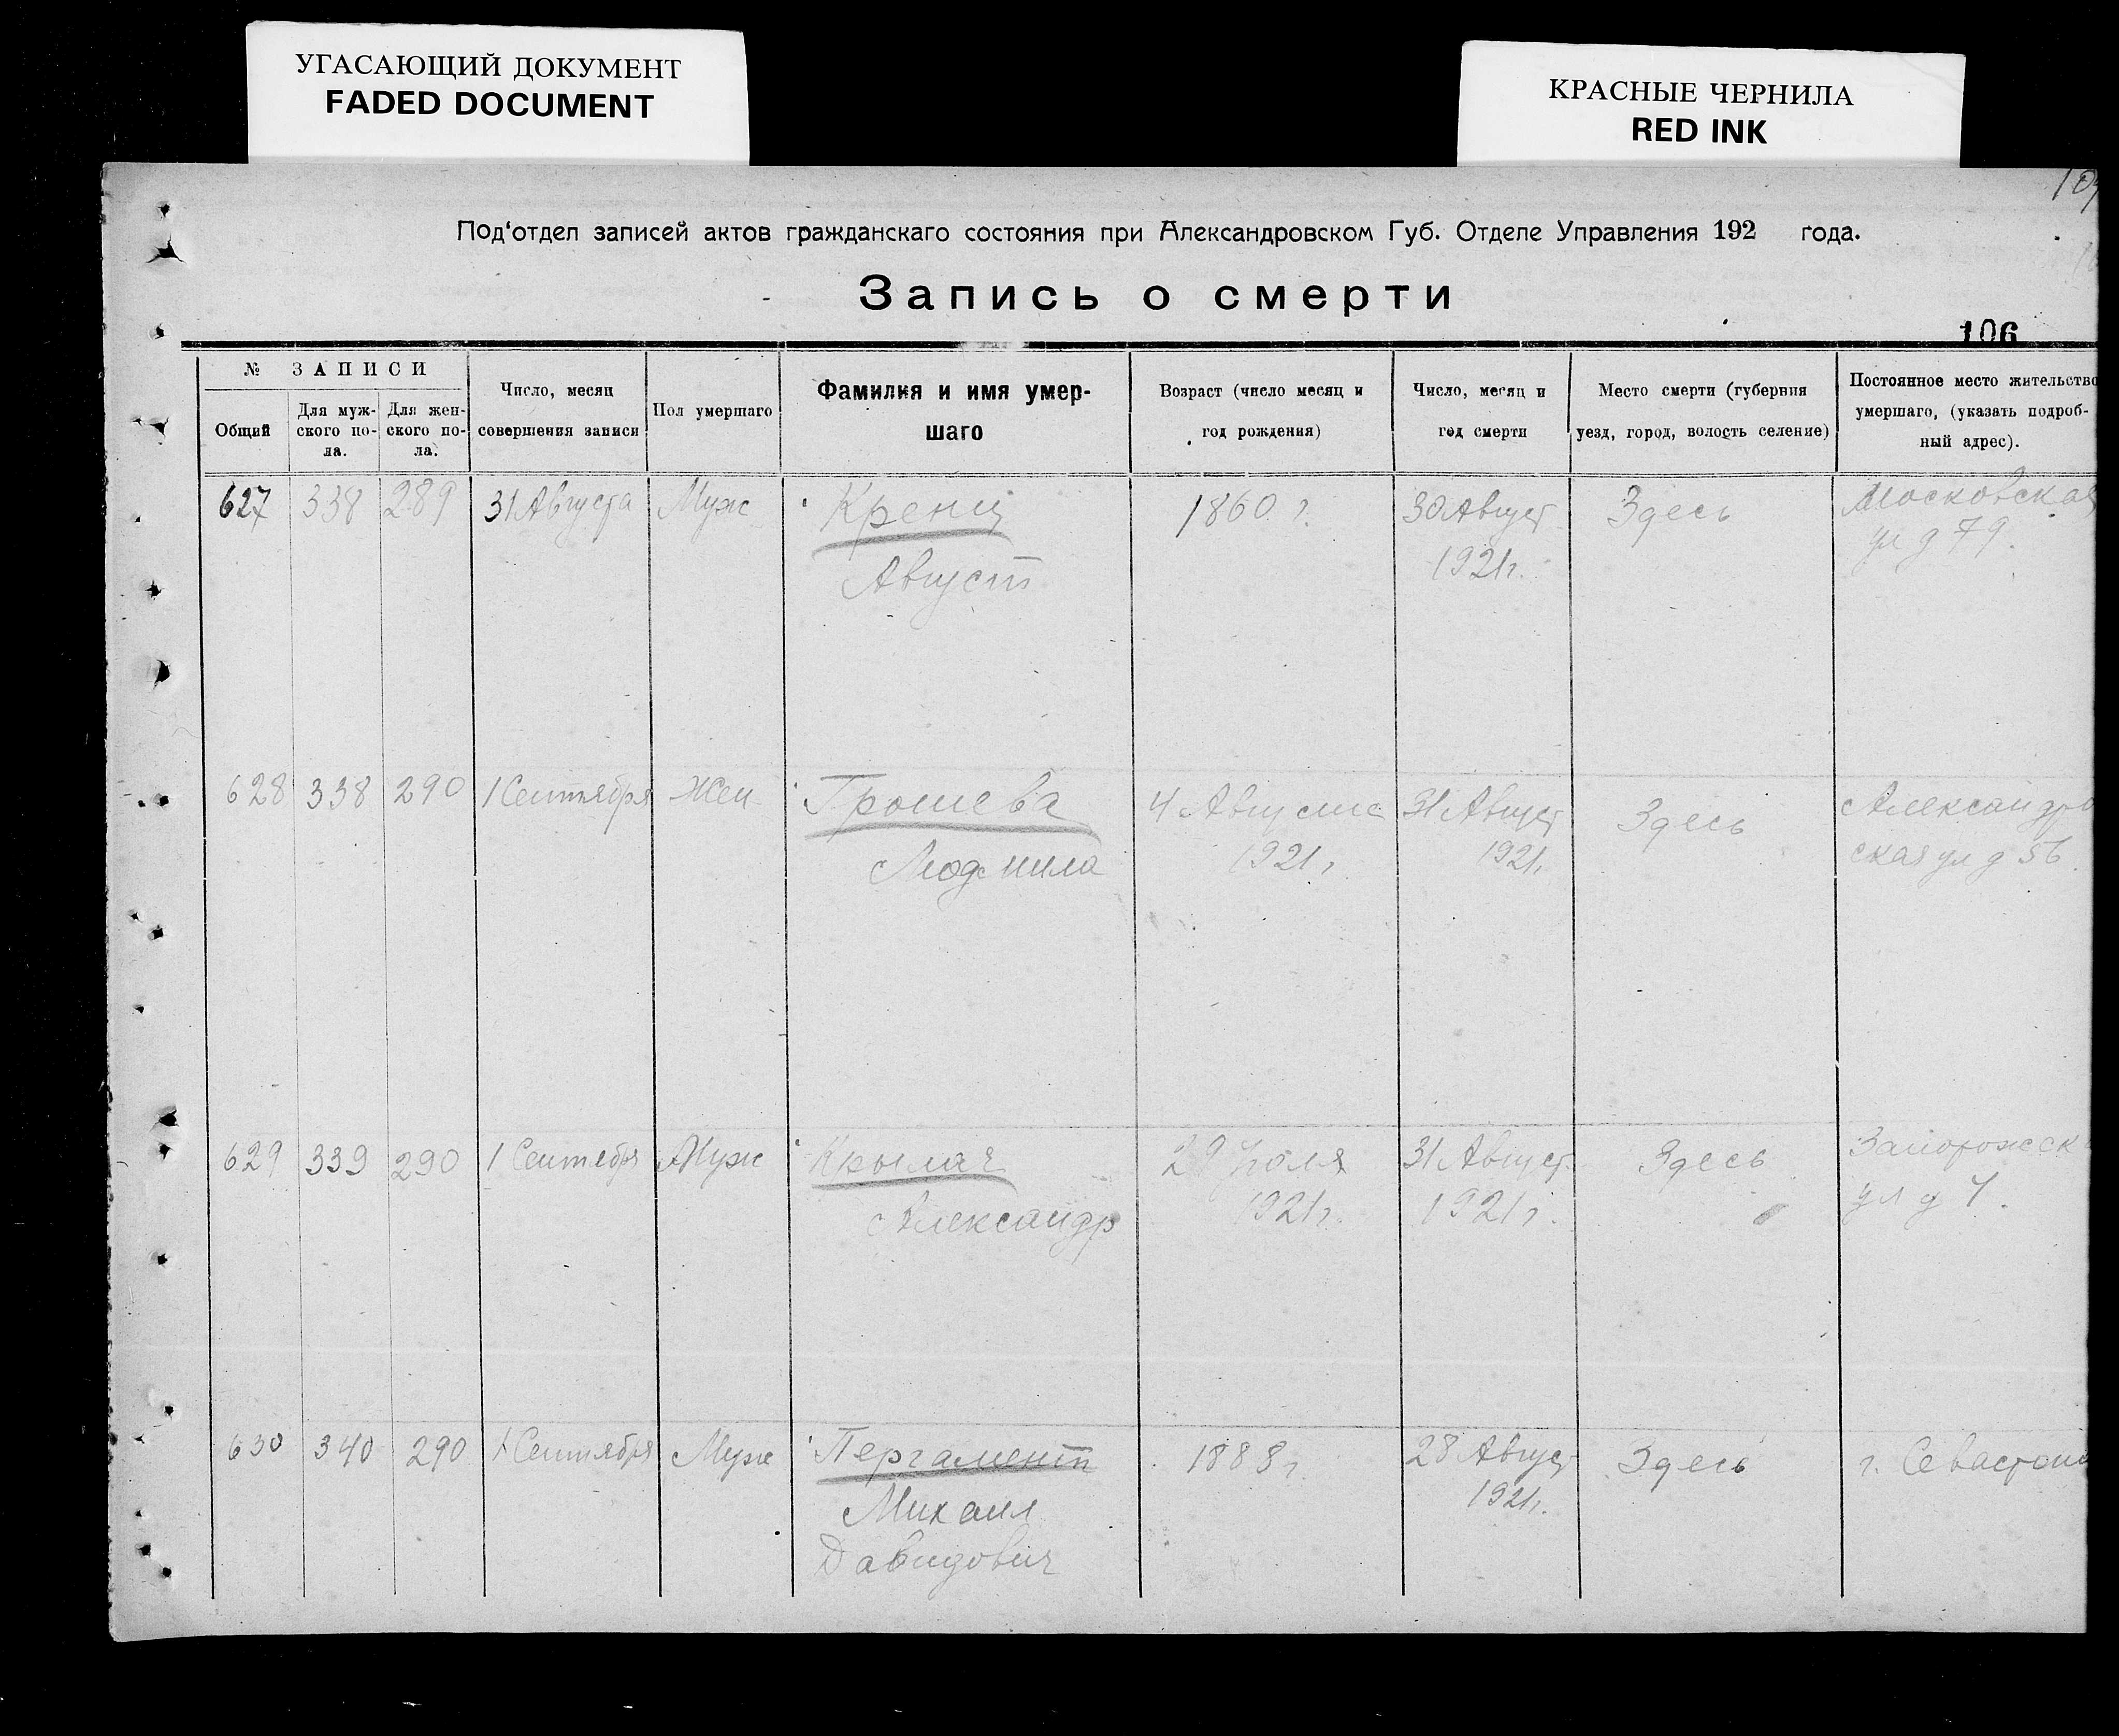 УГАСАЮЩИЙ ДОКУМЕНТ
FADED DOCUMENT
КРАСНЫЕ ЧЕРНИЛА
RED INK
Под‘отдел записей актов гражданскаго состояния при Александровском Губ. Отделе Управления 192 года.
Запись о смерти
106
№ ЗАПИСИ
Общий
Для муж-
ского по-
ла.
Для жен-
ского по-
ла.
Число, месяц
совершения записи
Пол умершаго
Фамилия и имя умер-
шаго
Возраст (число месяц и
год рождения)
Число, месяц и
год смерти
Место смерти (губерния
уезд, город, волость селение)
Постоянное место жительство
умершаго, (указать подроб-
ный адрес).
627 338 289 31 Августа Муж Кренц 1860 г. 30 Август Здесь Московская
Август 1921 г. ул д 79.
628 338 290 1 Сентября Жен Грошева 4 Августа 31 Август Здесь Александро
Людмила 1921 г 1921 г. ская ул д 56.
629 339 290 1 Сентября Муж Крылач 29 Июля 31 Август Здесь Запорожск
Александр 1921 г. 1921 г. ул д
630 340 290 1 Сентября Муж Пергамент 1888 г. 28 Август Здесь г. Севастопо
Михаил 1921 г.
Давидович